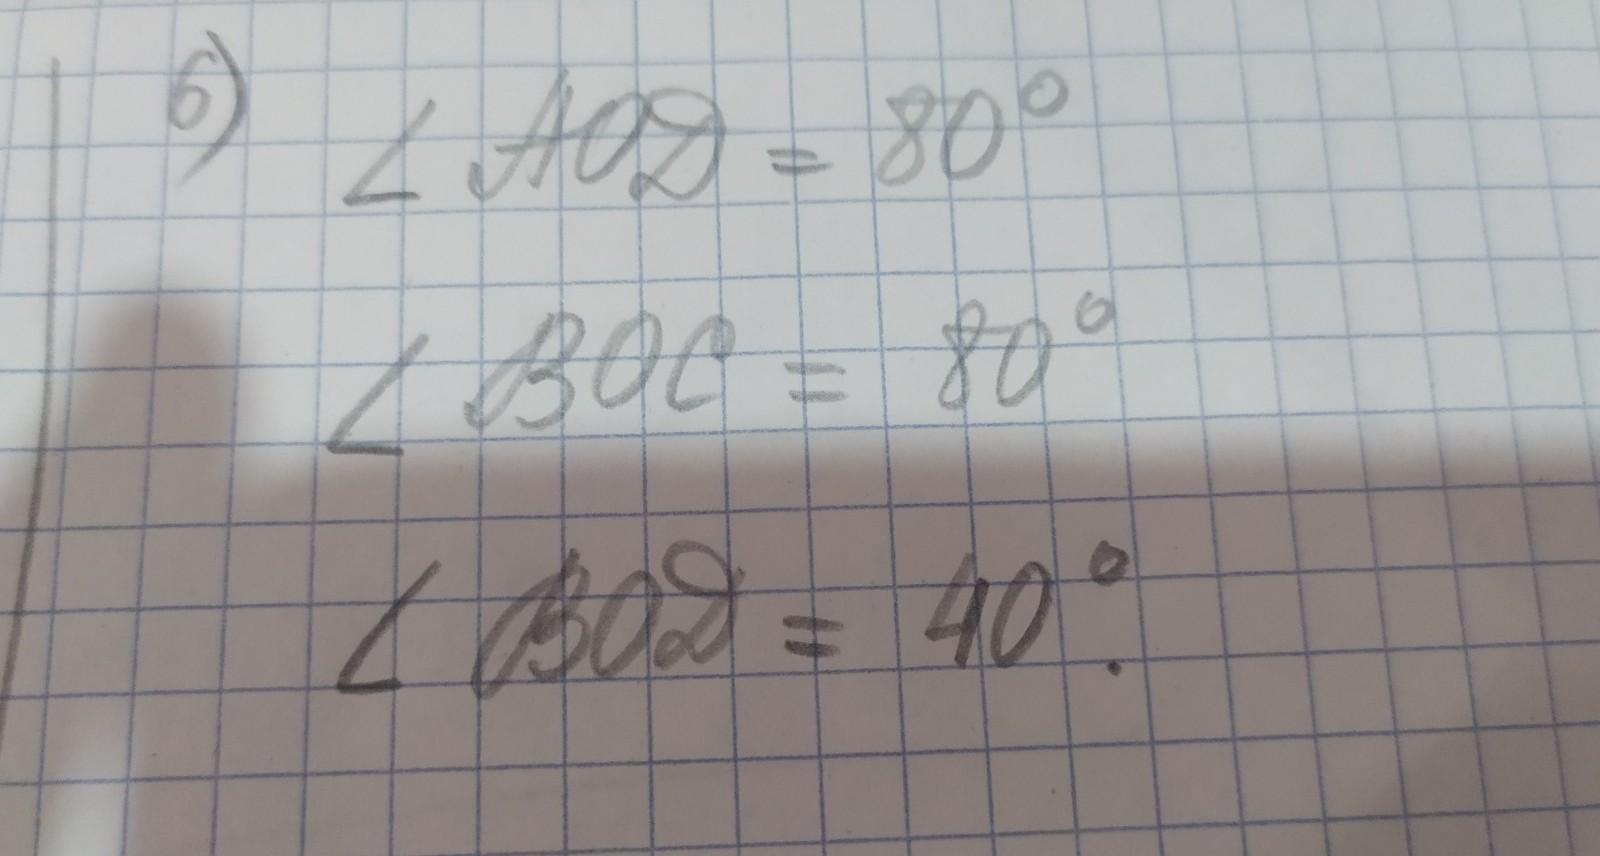 б) ∠ AOD = 80°
∠ BOC = 80°
∠ BOD = 40°.